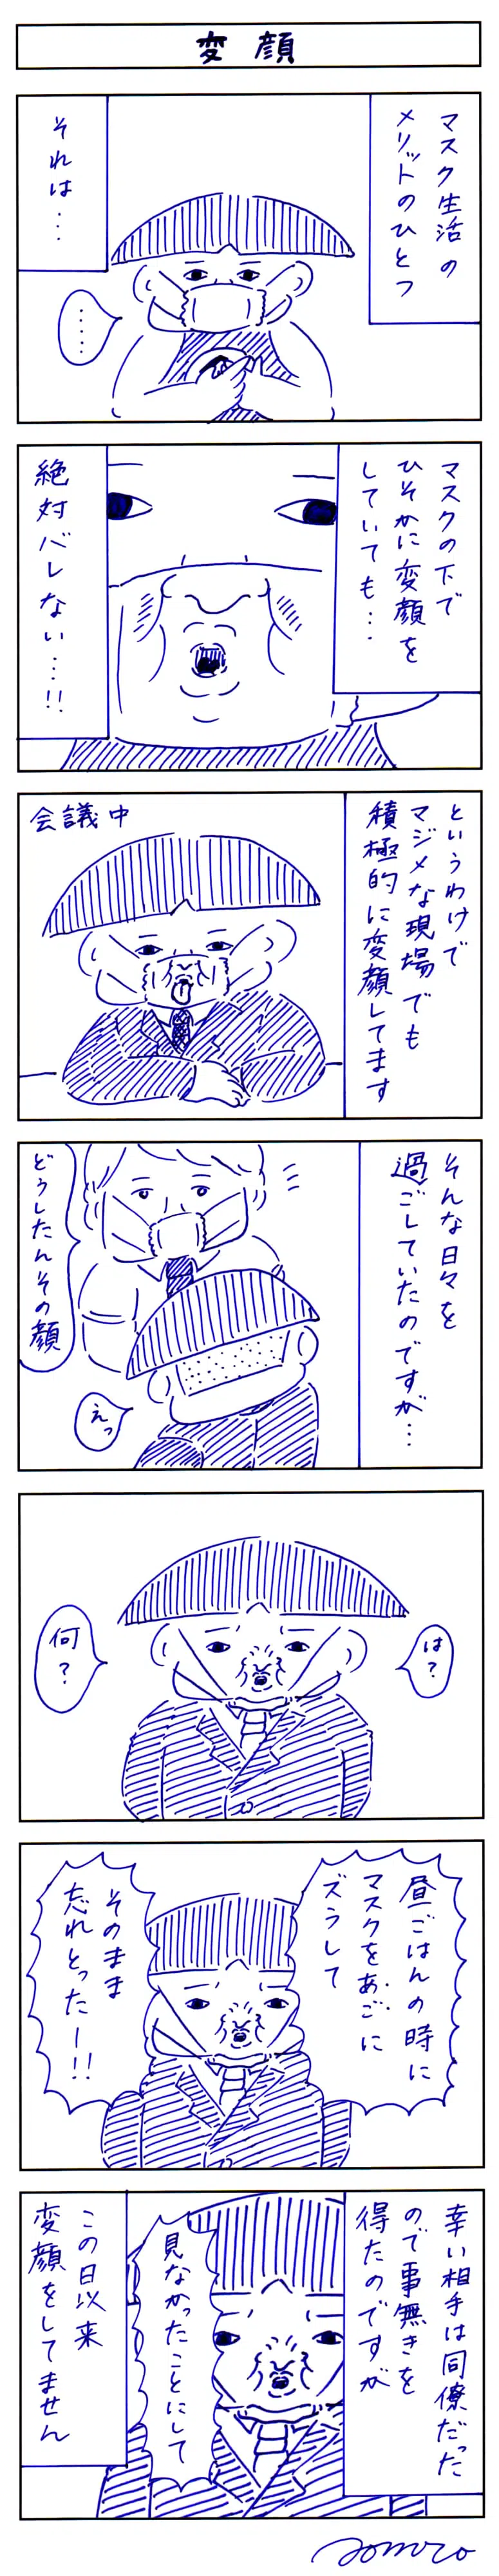 変顔
マスク生活の
メリットのひとつ
それは…
……
マスクの下で
ひそかに変顔を
していても…
絶対バレない…!!
というわけで
マジメな現場でも
積極的に変顔してます
会議中
そんな日々を
過ごしていたのですが…
どうしたんその顔
えっ
は?
何?
昼ごはんの時に
マスクをあごに
ズラして
そのまま
忘れとったー!!
幸い相手は同僚だった
ので事無きを
得たのですが
見なかったことにして
この日以来
変顔をしてません